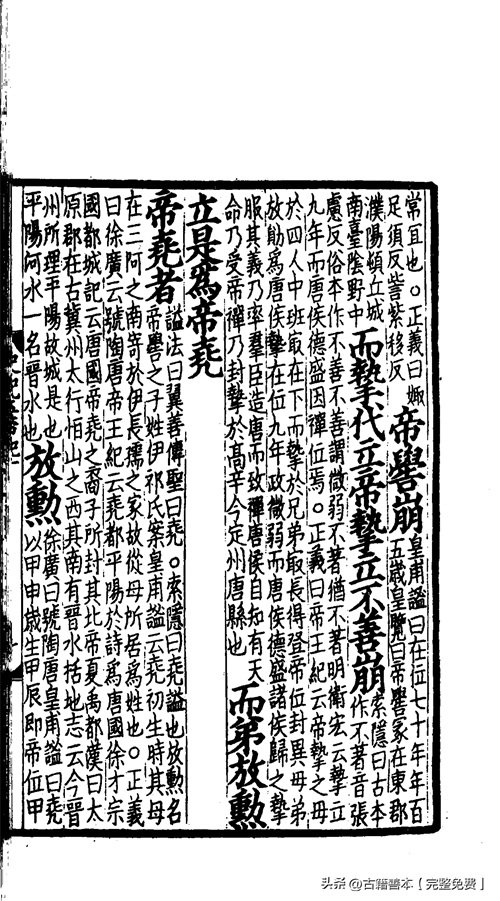 常宜也。正義曰娵
足須反訾紫移反
帝嚳崩
皇甫謐曰在位七十年年百
五歲皇覽曰帝嚳冢在東郡
濮陽頓丘城
南臺陰野中
而摯代立帝摯立不善崩
索隱曰古本
作不著音張
慮反俗本作不善不善謂微弱不著猶不著明衛宏云摯立
九年而唐侯德盛因禪位焉。正義曰帝王紀云帝摯之母
於四人中班最在下而摯於兄弟最長得登帝位封異母弟
放勛爲唐侯摯在位九年政微弱而唐侯德盛諸侯歸之摯
服其義乃率羣臣造唐而致禪唐侯自知有天
命乃受帝禪乃封摯於高辛今定州唐縣也
而弟放勳
立是爲帝堯
帝堯者
謚法曰翼善傳聖曰堯。索隱曰堯謚也放勳名
帝嚳之子姓伊祁氏案皇甫謐云堯初生時其母
在三阿之南寄於伊長孺之家故從母所居爲姓也。正義
曰徐廣云號陶唐帝王紀云堯都平陽於詩爲唐國徐才宗
國都城記云唐國帝堯之裔子所封其北帝夏禹都漢曰太
原郡在古冀州太行恒山之西其南有晉水括地志云今晉
州所理平陽故城是也
平陽河水一名晉水也
放勳
徐廣曰號陶唐皇甫謐曰堯
以甲申歲生甲辰即帝位甲
头条@古籍善本【完整免费】